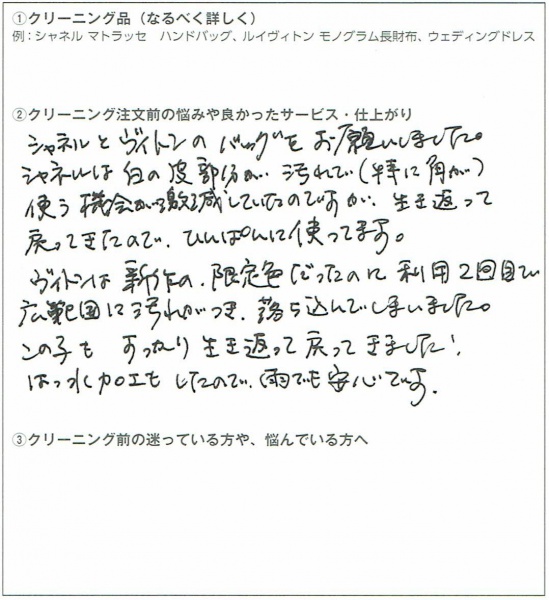 ①クリーニング品（なるべく詳しく）
例：シャネル マトラッセ　ハンドバッグ、ルイヴィトン モノグラム長財布、ウェディングドレス
②クリーニング注文前の悩みや良かったサービス・仕上がり
シャネルとヴィトンのバッグをお願いしました。
シャネルは白の皮部分が、汚れで（特に角が）
使う機会が激減していたのですが、生き返って
戻ってきたので、ひんぱんに使ってます。
ヴィトンは新作の、限定色だったのに利用2回目で
広範囲に汚れがつき、落ち込んでしまいました。
この子もすっかり生き返って戻ってきました!
はっ水加工もしたので、雨でも安心です.
③クリーニング前の迷っている方や、悩んでいる方へ